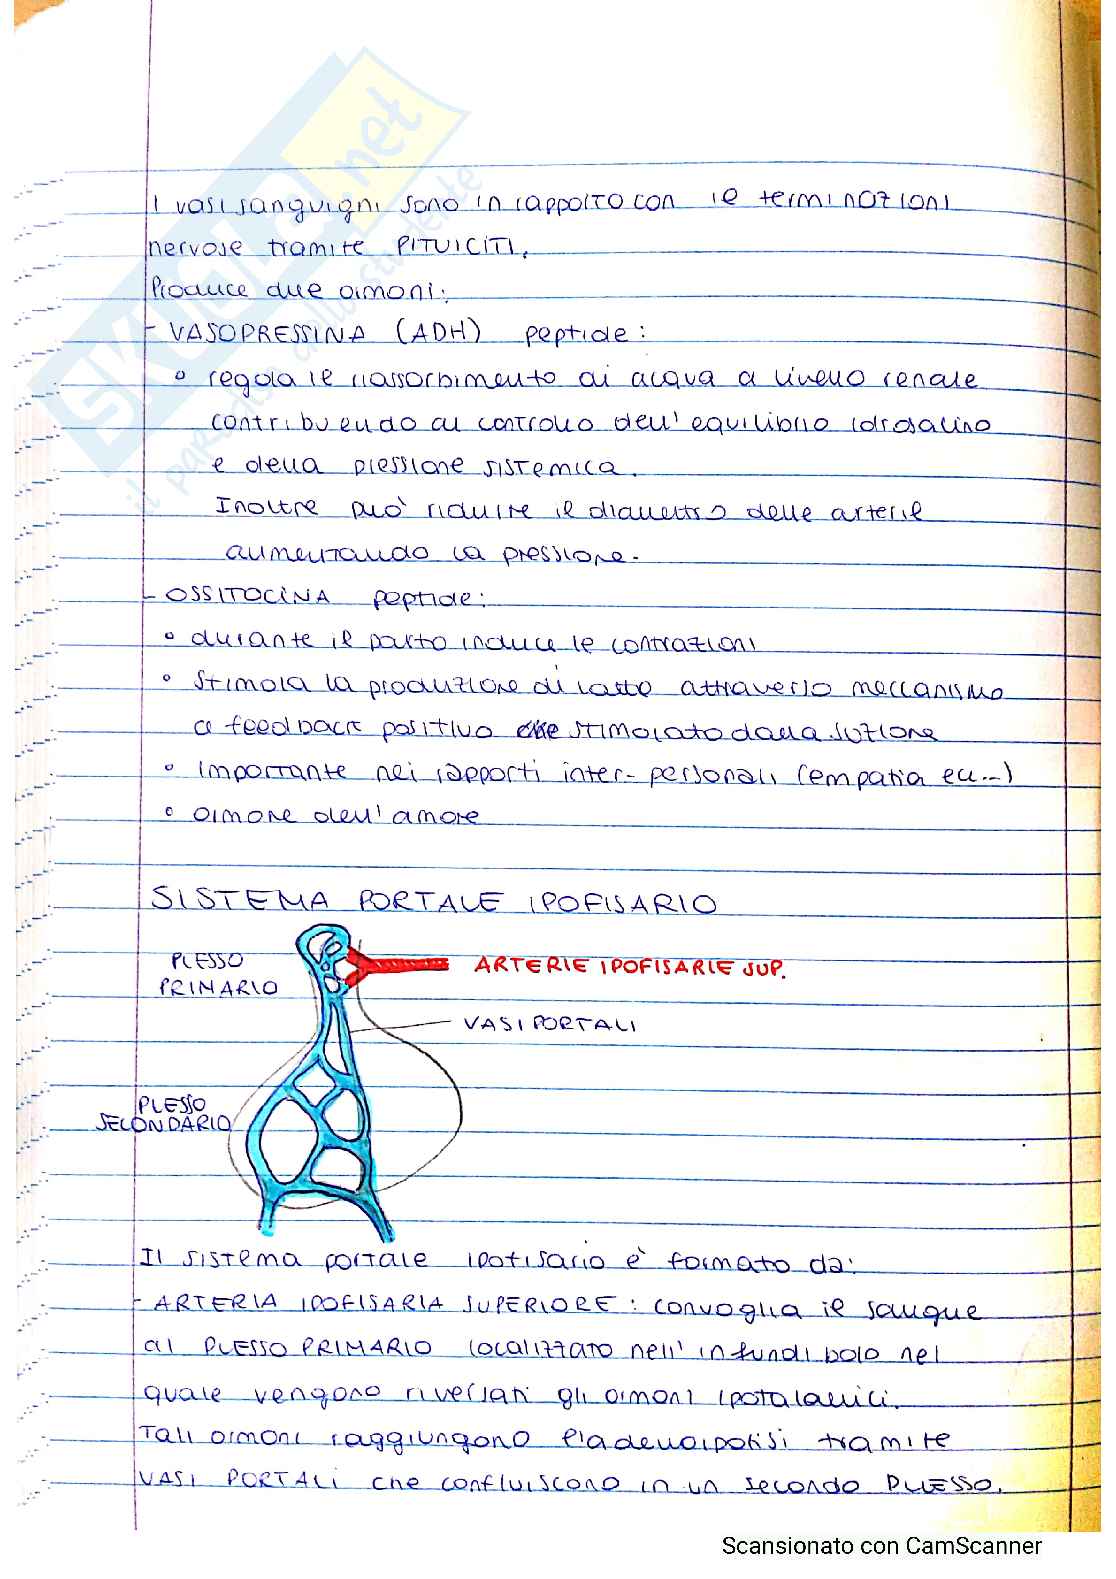 SKUOLA.net
il paradiso dello studente
I vasi sanguigni sono in rapporto con le terminazioni
nervose tramite PITUICITI.
Produce due ormoni:
- VASOPRESSINA (ADH) peptide:
° regola le riassorbimento di acqua a livello renale
contribuendo al controllo dell'equilibrio idrosalino
e della pressione sistemica.
Inoltre può ridurre il diametro delle arterie
aumentando la pressione.
- OSSITOCINA peptide:
° durante il parto induce le contrazioni
° stimola la produzione di latte attraverso meccanismo
a feedback positivo che stimolato dalla suzione
° importante nei rapporti inter-personali (empatia ecc...)
° ormone dell'amore
SISTEMA PORTALE IPOFISARIO
PLESSO
PRIMARIO
ARTERIE IPOFISARIE SUP.
VASI PORTALI
PLESSO
SECONDARIO
Il sistema portale ipofisario è formato da:
- ARTERIA IPOFISARIA SUPERIORE: convoglia il sangue
al PLESSO PRIMARIO localizzato nell'infundibolo nel
quale vengono riversati gli ormoni ipotalamici.
Tali ormoni raggiungono l'adenoipofisi tramite
VASI PORTALI che confluiscono in un secondo PLESSO.
Scansionato con CamScanner